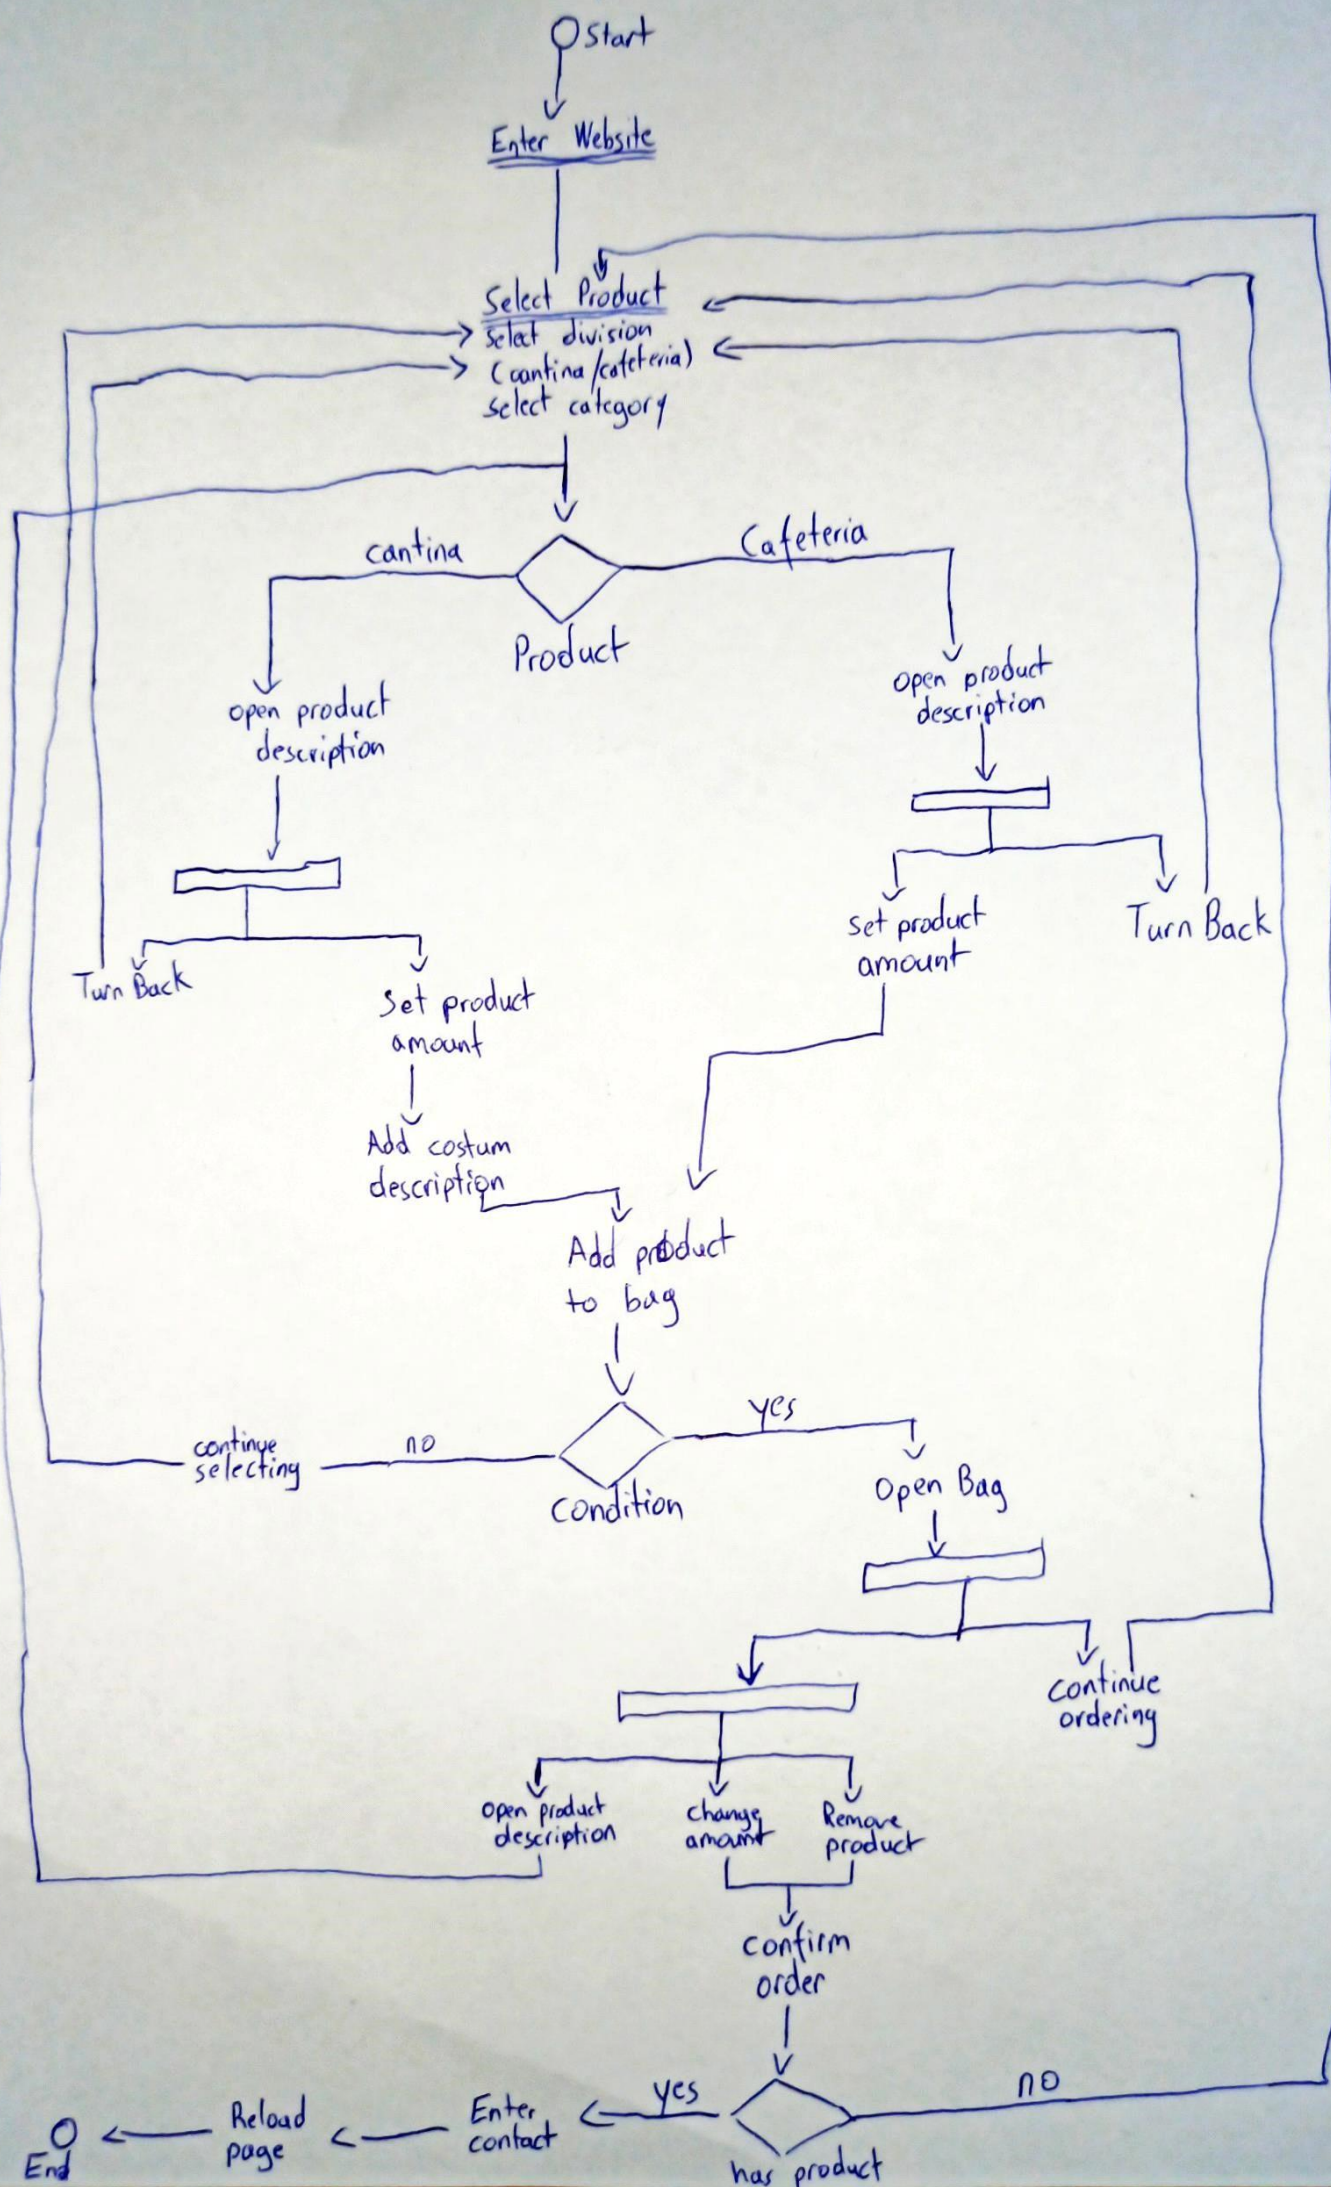 Start
Enter Website
Select Product
Select division
(cantina/cafeteria)
select category
cantina
Cafeteria
Product
open product
description
open product
description
Turn Back
Set product
amount
set product
amount
Turn Back
Add costum
description
Add product
to bag
yes
no
continue
selecting
condition
open Bag
continue
ordering
open product
description
change
amount
Remove
product
confirm
order
yes
no
Enter
contact
Reload
page
End
has product